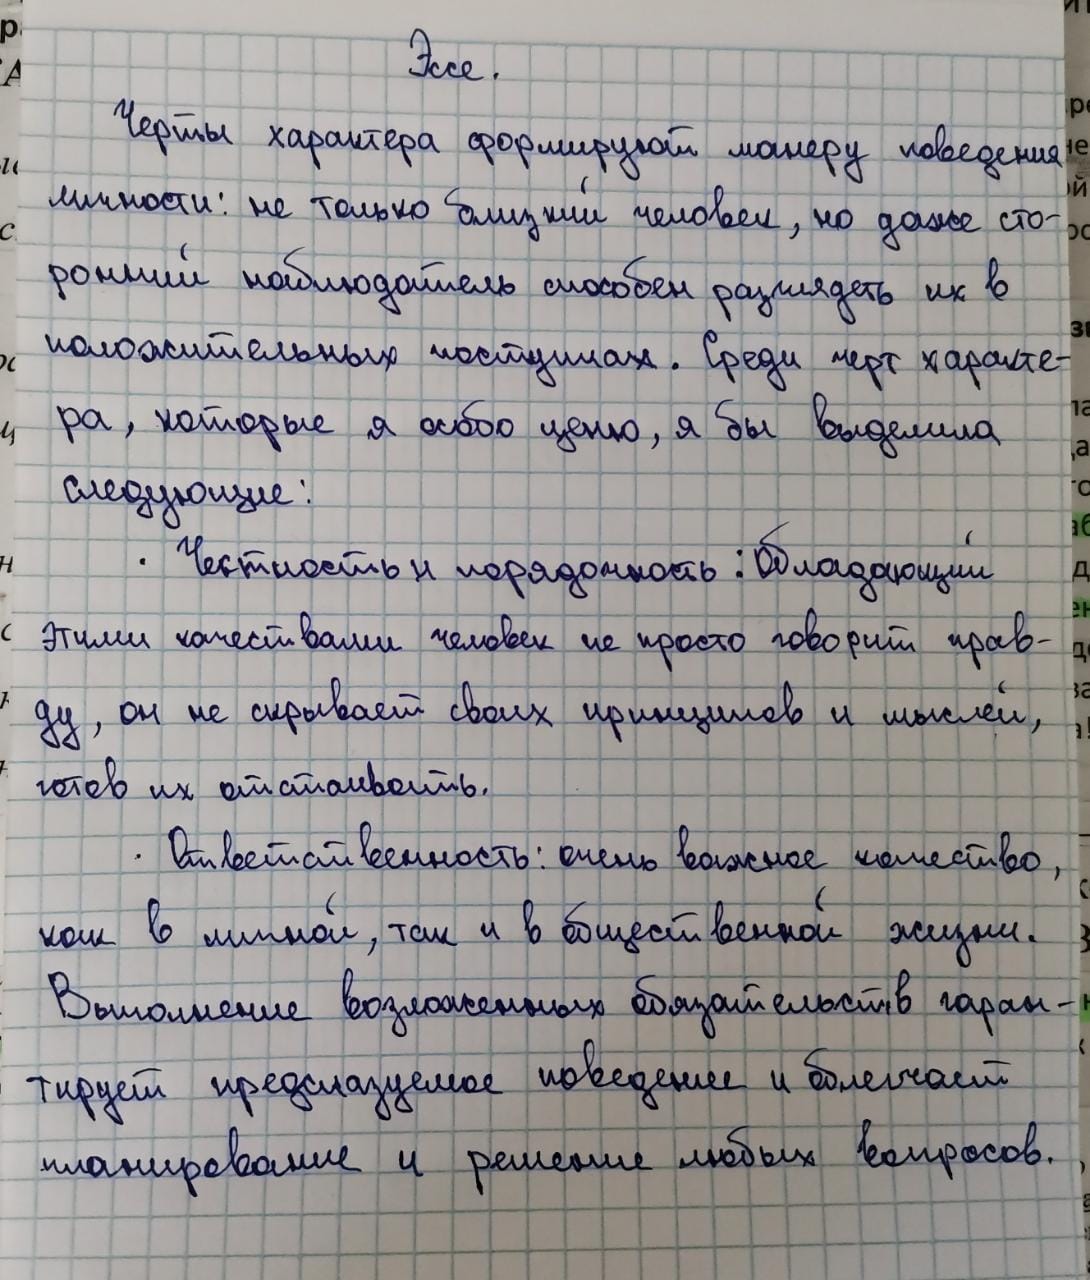 Эссе.
Черты характера формируют манеру поведения
личности: не только близкий человек, но даже сто-
ронний наблюдатель способен разглядеть их в
положительных поступках. Среди черт характе-
ра, которые я особо ценю, я бы выделила
следующие:
· Честность и порядочность: Обладающий
этими качествами человек не просто говорит прав-
ду, он не скрывает своих принципов и мыслей,
готов их отстаивать.
· Ответственность: очень важное качество,
как в личной, так и в общественной жизни.
Выполнение возложенных обязательств гаран-
тирует предсказуемое поведение и облегчает
планирование и решение любых вопросов.